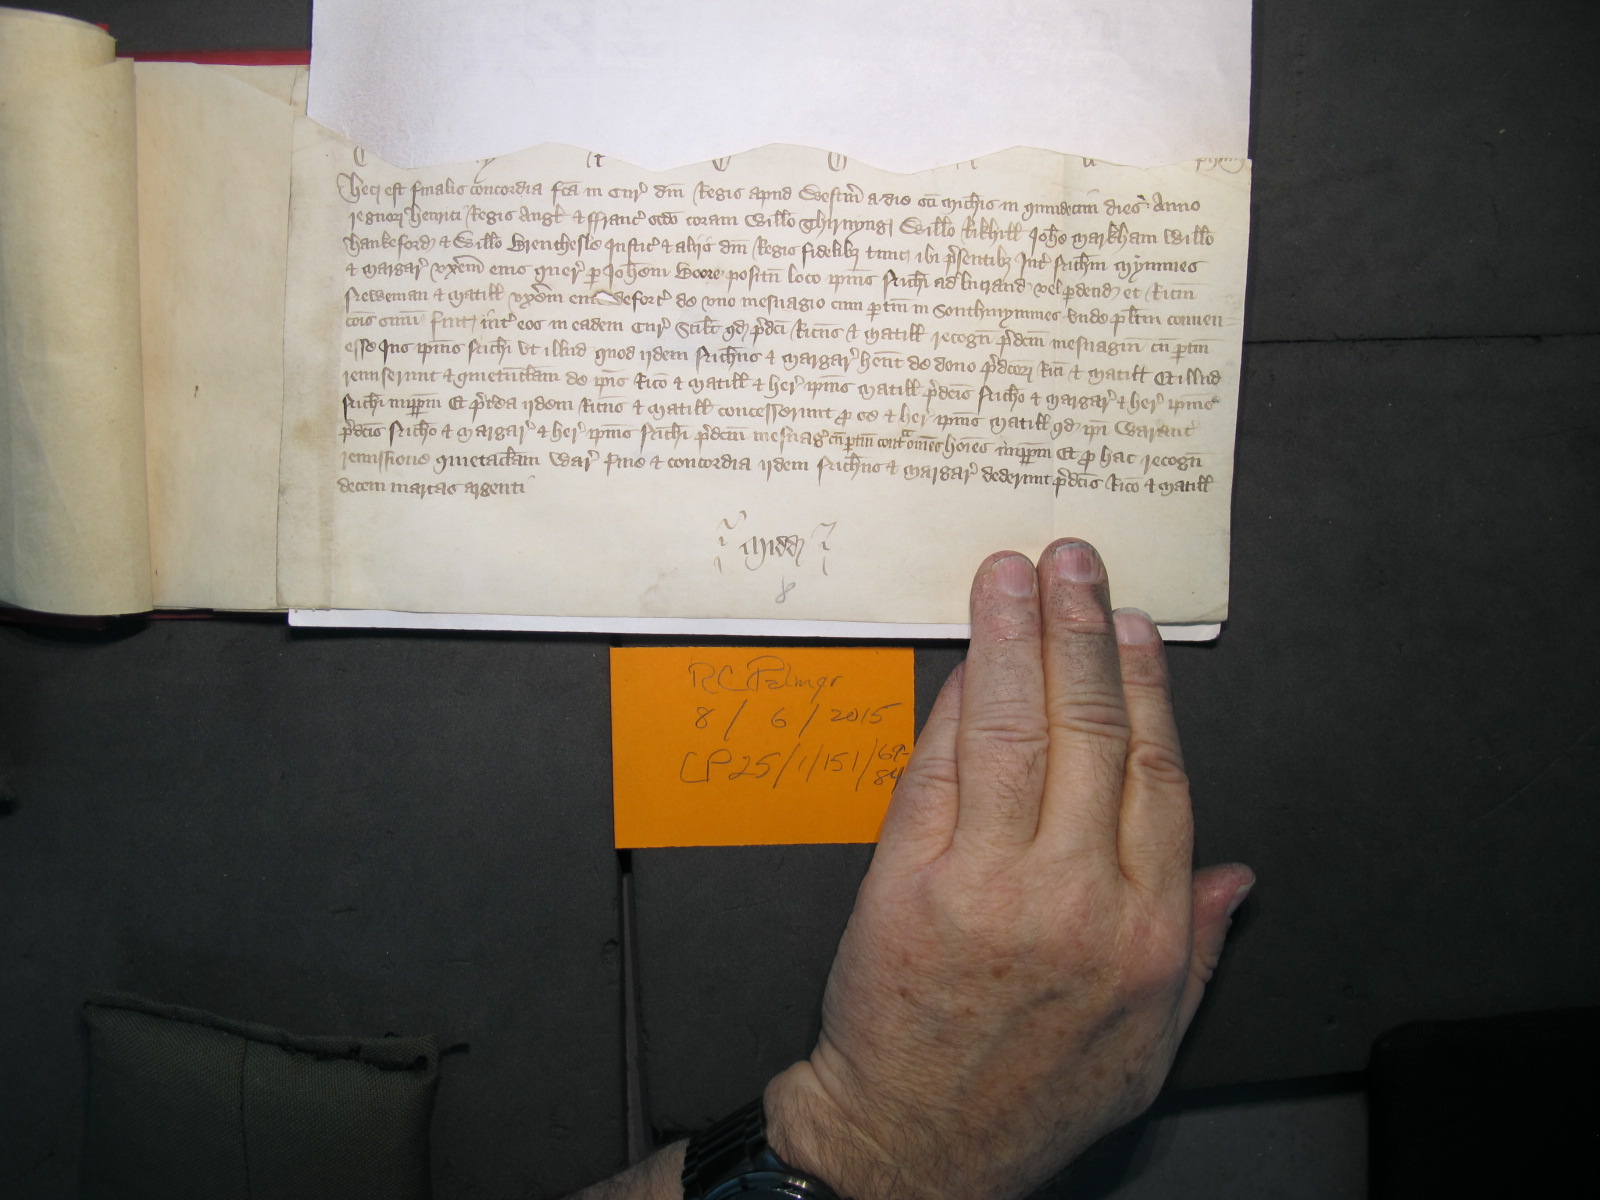 Hec est finalis concordia fc̄a in Cur̉ dn̄i Regis apud Westm̄ a die sc̄i Mich̄is in quindecim dies Anno
regnor̄ Henrici Regis Angl̄ & ffranc̉ sc̄do coram Will̄o Thirnyng Will̄o Rikhill̄ Joh̄e Markham Will̄o
Hankeford & Will̄o Brenchesle Justic̉ & alijs dn̄i Regis fidelibȝ tunc ibi p̄sentibȝ Int̉ Rich̄m Mymmes
& Margar̉ vx̄em eius quer̉ p Joh̄em Boore positū loco ip̄ius Rich̄i ad lucrand̄ vel p̱dend̄ et Ric̄m
Neweman & Matill̄ vx̄em eius deforc̉ de vno mesuagio cum p̱tin̄ in Southmymmes vnde pl̄itm conuen=
cōis sum̄ fuit int̉ eos in eadem Cur̉ Scil̄t qd̄ p̄dc̄i Ric̄us & Matill̄ recogn̄ p̄dc̄m mesuagiū cū p̱tin̄
esse Jus ip̄ius Rich̄i vt illud quod ijdem Rich̄us & Margar̉ hēnt de dono p̄dc̄or̄ Ric̄i & Matill̄ Et illud
remiserunt & quietūclam̄ de ip̄is Ric̄o & Matill̄ & her̉ ip̄ius Matill̄ p̄dc̄is Rich̄o & Margar̉ & her̉ ip̄ius
Rich̄i imp̱p̱m Et p̄t̉ea ijdem Ric̄us & Matill̄ concesserunt p̱ se & her̉ ip̄ius Matill̄ qd̄ ip̄i Warant̉
p̄dc̄is Rich̄o & Margar̉ & her̉ ip̄ius Rich̄i p̄dc̄m mesuag̉ cū p̱tin̄ cont̉ᵃ om̄es hōies imp̱p̱m Et p̱ hac recogn̄
remissione quietaclam̄ War̉ fine & concordia ijdem Rich̄us & Margar̉ dederunt p̄dc̄is Ric̄o & Matill̄
decem marcas argenti
Midd̄
8
RC Palmer
8 / 6 / 2015
CP 25/1/151/69-
84